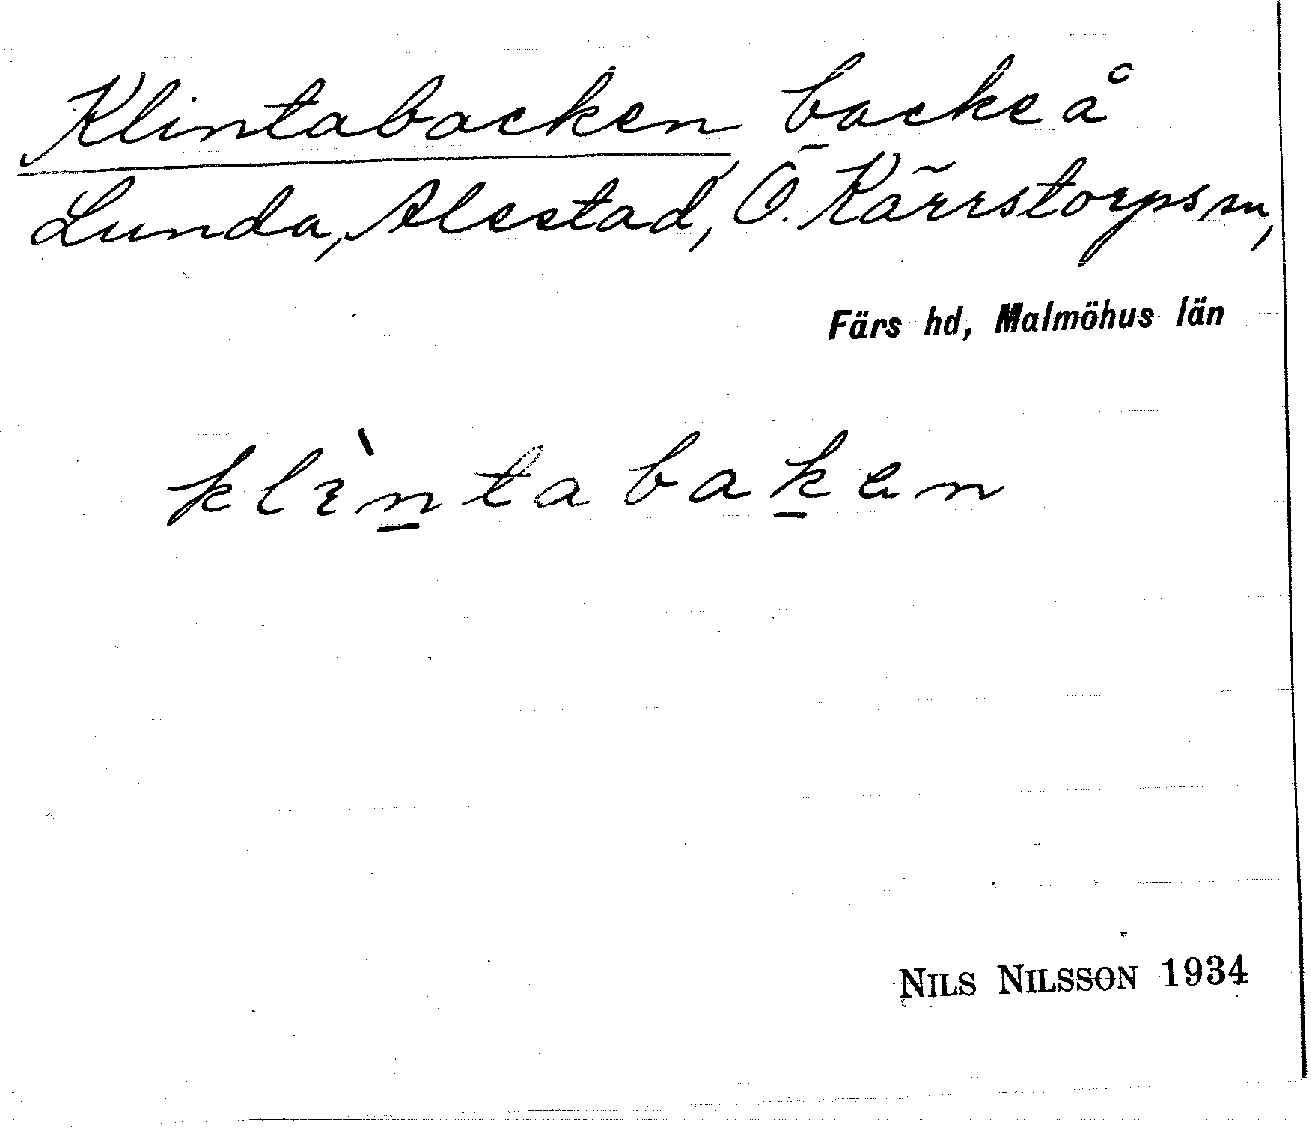 Klintabacken backe å
Lunda, Alestad, Ö. Kärrstorps sn,
Färs hd, Malmöhus län
klìntabaken
NILS NILSSON 1934